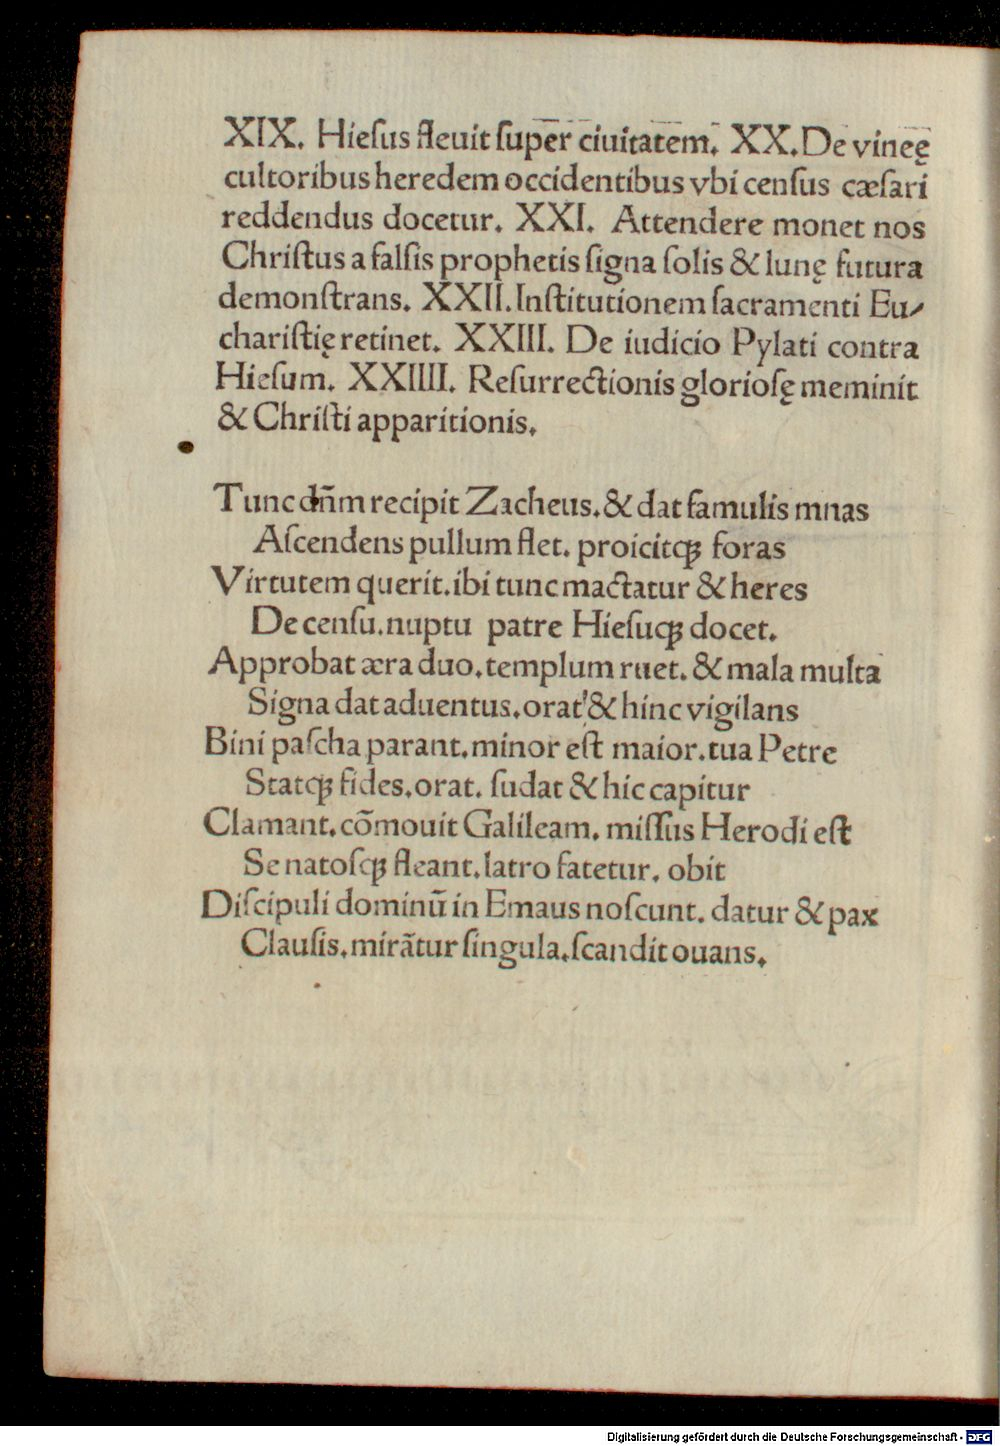 XIX. Hieſus fleuit ſuper ciuitatem. XX. De vineę
cultoribus heredem occidentibus vbi cenſus cæſari
reddendus docetur. XXI. Attendere monet nos
Chriſtus a falſis prophetis ſigna ſolis & lunę futura
demonſtrans. XXII. Inſtitutionem ſacramenti Eu⸗
chariſtię retinet. XXIII. De iudicio Pylati contra
Hieſum. XXIIII. Reſurrectionis glorioſę meminit
& Chriſti apparitionis.
Tunc dn̄m recipit Zacheus. & dat famulis mnas
Aſcendens pullum flet. proicitꝙ foras
Virtutem querit. ibi tunc mactatur & heres
De cenſu. nuptu patre Hieſuꝙ docet.
Approbat æra duo. templum ruet. & mala multa
Signa dat aduentus. orat' & hinc vigilans
Bini paſcha parant. minor eſt maior. tua Petre
Statꝙ fides. orat. ſudat & hic capitur
Clamant. cōmouit Galileam. miſſus Herodi eſt
Se natoſꝙ fleant. latro fatetur. obit
Diſcipuli dominū in Emaus noſcunt. datur & pax
Clauſis. mirātur ſingula. ſcandit ouans.
Digitalisierung gefördert durch die Deutsche Forschungsgemeinschaft - DFG